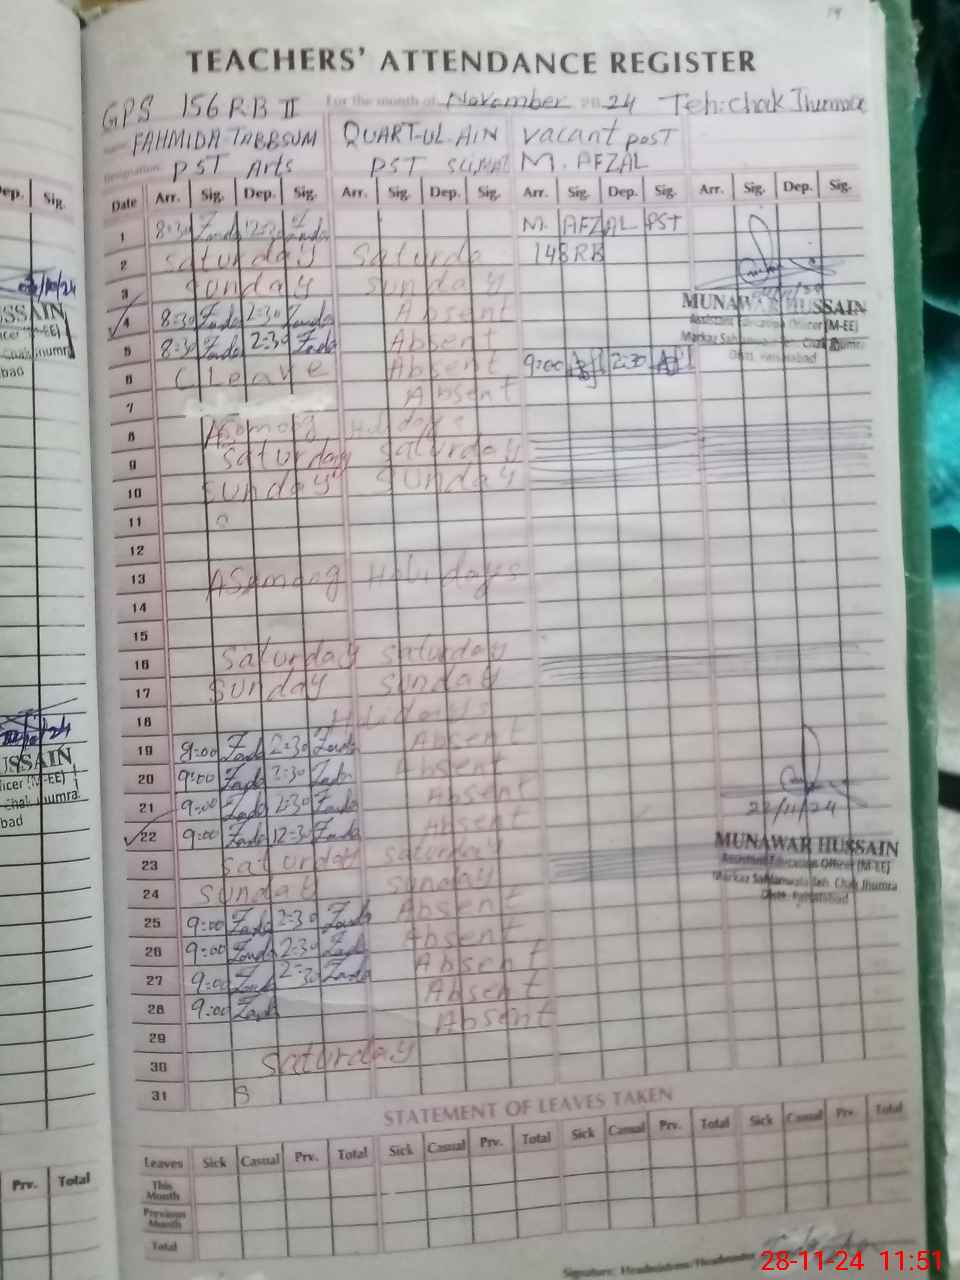 TEACHERS' ATTENDANCE REGISTER
GPS 156 RB II For the month of November 20 24 Teh: chak Jhumra
FAHMIDA TABBSUM QUART-UL-AIN Vacant post
Designation PST Arts PST M. AFZAL
Date Arr. Sig. Dep. Sig. Arr. Sig. Dep. Sig. Arr. Sig. Dep. Sig. Arr. Sig. Dep. Sig.
1 8:30 12:30 M. AFZAL PST
2 Saturday Saturda 148 RB
3 Sunday Sunday
MUNAWAR HUSSAIN
Assistant Education Officer (M-EE)
4 8:30 2:30 Absent
5 8:30 2:30 Absent
6 C Leave Absent 9:00 2:30
7 Absent
8 Holidays
9 Saturday Saturday
10 Sunday Sunday
11
12
13 ASmmong Holidays
14
15
16 Saturday Saturday
17 Sunday Sunday
18 Holidays
19 9:00 2:30 Absent
20 9:00 2:30 Absent
21 9:00 2:30 Absent
22/11/24
22 9:00 12:30 Absent
MUNAWAR HUSSAIN
Assistant Education Officer (M-EE)
Markaz Sahianwala Teh. Chak Jhumra
Distt. Faisalabad
23 Saturday Saturday
24 Sunday Sunday
25 9:00 2:30 Absent
26 9:00 2:30 Absent
27 9:00 2:30 Absent
28 9:00 Absent
29 Absent
30 Saturday
31 S
STATEMENT OF LEAVES TAKEN
Leaves Sick Casual Prv. Total Sick Casual Prv. Total Sick Casual Prv. Total Sick Casual Prv. Total
This Month
Previous Month
Total
Signature: Headmistress/Headmaster
28-11-24 11:51
Dep. Sig.
HUSSAIN
Prv. Total